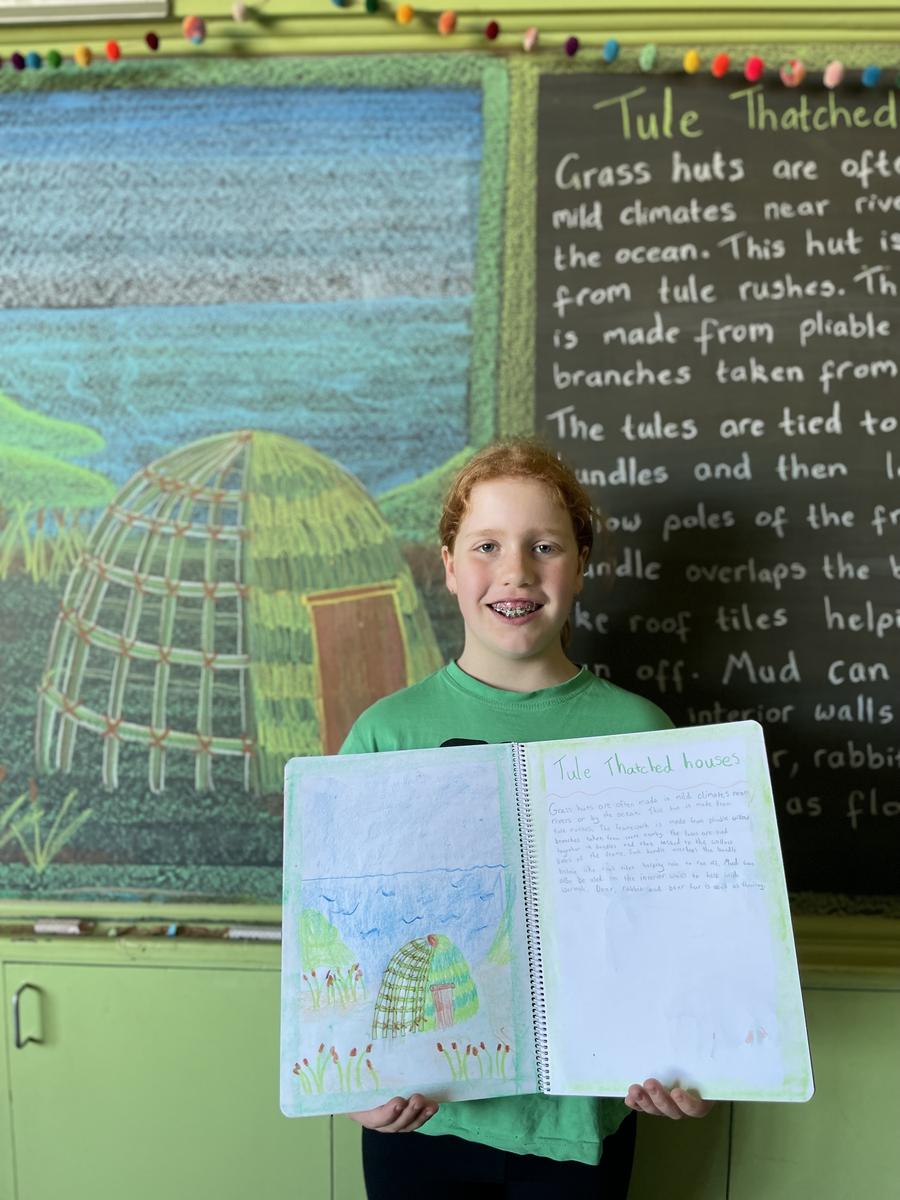 Tule Thatched
Grass huts are ofte
mild climates near rive
the ocean. This hut is
from tule rushes. Th
is made from pliable
branches taken from
The tules are tied to
undles and then l
ow poles of the fr
undle overlaps the b
ke roof tiles helpi
n off. Mud can
interior walls
r, rabbit
as flo
Tule Thatched houses
Grass huts are often made in mild climates near
rivers or by the ocean. This hut is made from
tule rushes. The framework is made from pliable willow
branches taken from near by. the tules are tied
together in bundles and then lashed to the willow
poles of the frame. Each bundle overlaps the bundle
below like roof tiles helping rain to run off. Mud can
also be used on the interior walls to help keep
warmth. Deer, rabbit and bear fur is used as flooring.